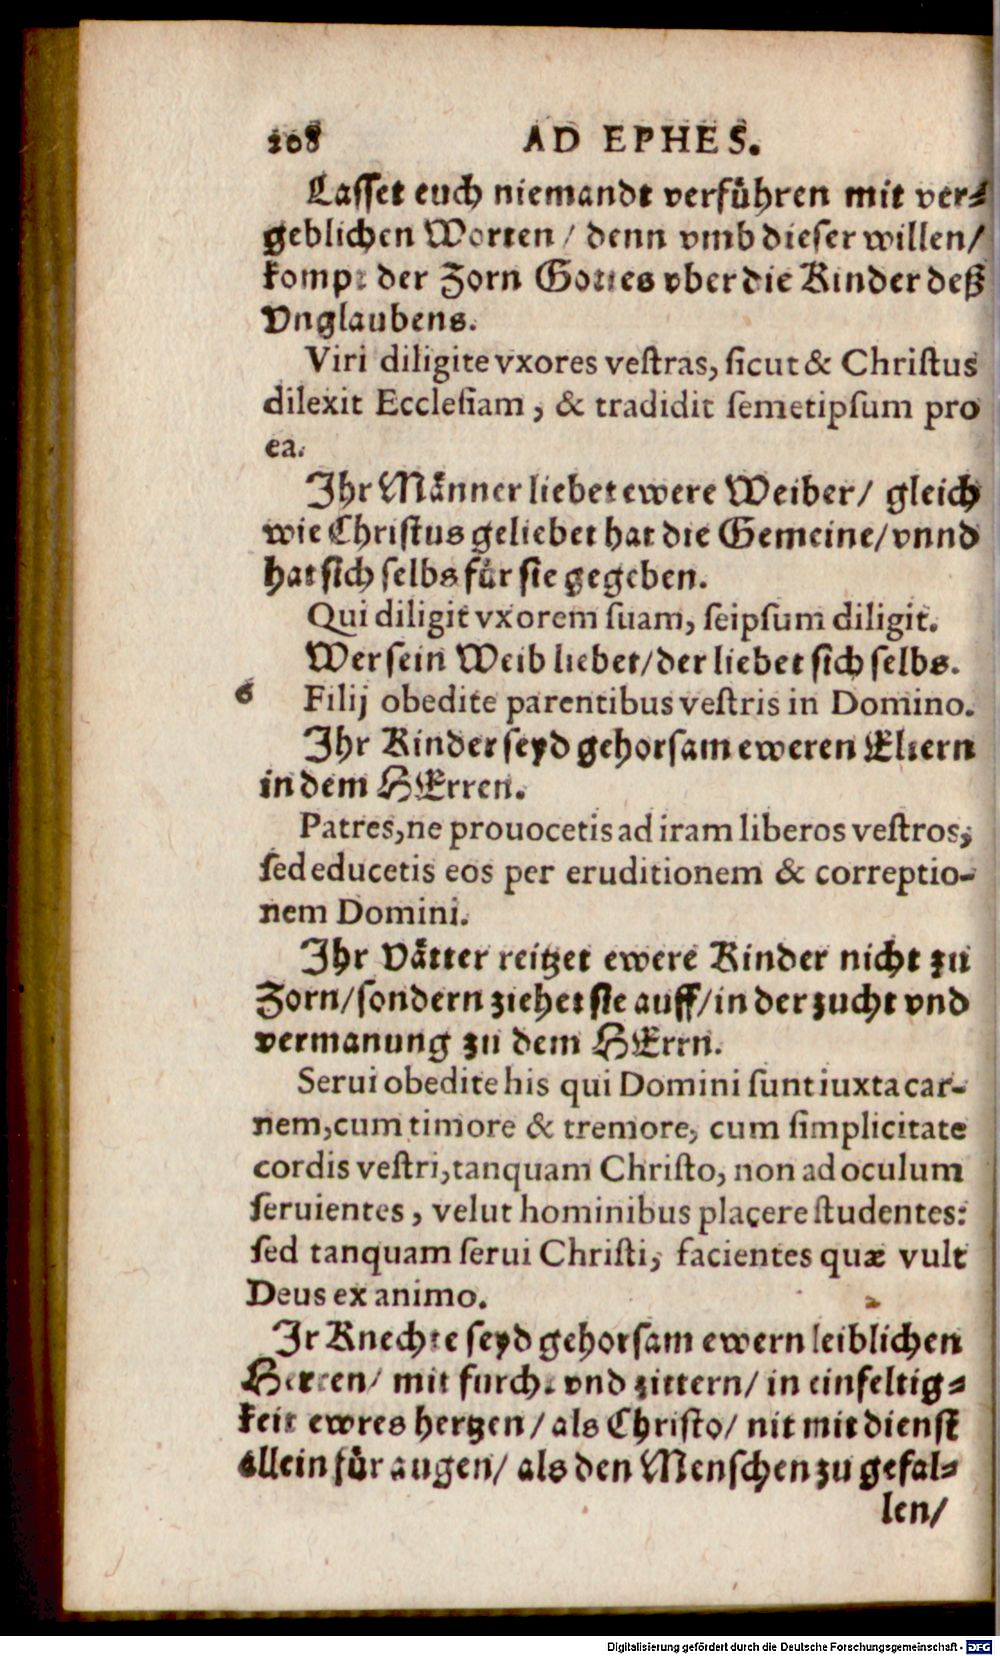 208 AD EPHES.
Lasset euch niemandt verführen mit ver⸗
geblichen Worten / denn vmb dieser willen /
kompt der Zorn Gottes vber die Kinder deß
Vnglaubens.
Viri diligite vxores veſtras, ſicut & Chriſtus
dilexit Eccleſiam, & tradidit ſemetipſum pro
ea.
Ihr Männer liebet ewere Weiber / gleich
wie Christus geliebet hat die Gemeine / vnnd
hat sich selbs für sie gegeben.
Qui diligit vxorem ſuam, ſeipſum diligit.
Wer sein Weib liebet / der liebet sich selbs.
6 Filij obedite parentibus veſtris in Domino.
Ihr Kinder seyd gehorsam eweren Eltern
in dem HErren.
Patres, ne prouocetis ad iram liberos veſtros,
ſed educetis eos per eruditionem & correptio-
nem Domini.
Ihr Vätter reitzet ewere Kinder nicht zu
Zorn / sondern ziehet sie auff / in der zucht vnd
vermanung zu dem HErrn.
Serui obedite his qui Domini ſunt iuxta car-
nem, cum timore & tremore, cum ſimplicitate
cordis veſtri, tanquam Chriſto, non ad oculum
ſeruientes, velut hominibus placere ſtudentes:
ſed tanquam ſerui Chriſti, facientes quæ vult
Deus ex animo.
Ir Knechte seyd gehorsam ewern leiblichen
Herren / mit furcht vnd zittern / in einfeltig⸗
keit ewres hertzen / als Christo / nit mit dienst
allein für augen / als den Menschen zu gefal⸗
len /
Digitalisierung gefördert durch die Deutsche Forschungsgemeinschaft - DFG